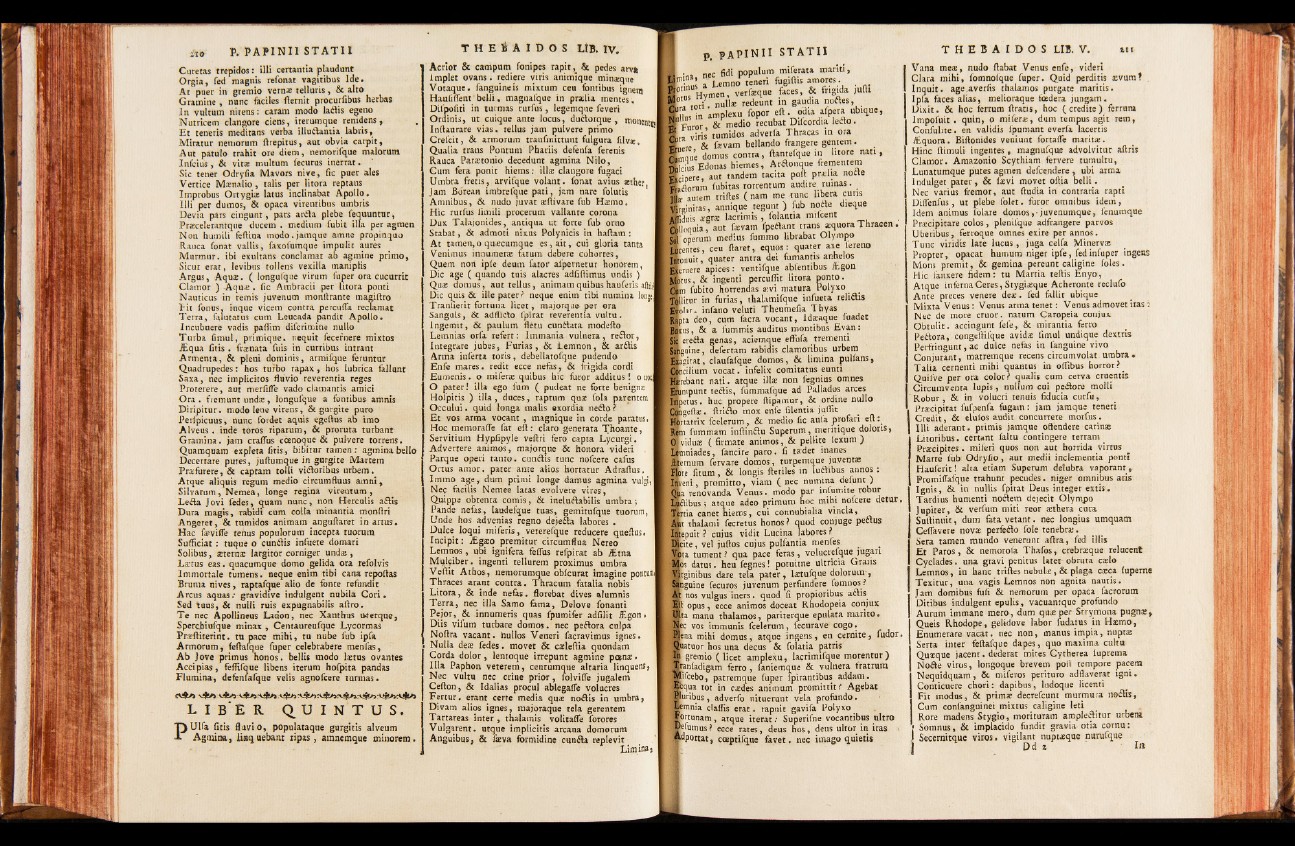 210 P. PAPINII STATII
Curetas trepidos: illi certantia plaudunt
Orgia, ſed magnis reſonat vagitibus Ide.
At puer in gremio vernæ telluris, & alto
Gramine, nunc faciles ſternit procurſibus herbas
In vultum nitens: caram modo lactis egeno
Nutricem clangore ciens, iterumque renidens,
Et teneris meditans verba illuctantia labris,
Miratur nemorum ſtrepitus, aut obvia carpit,
Aut patulo trahit ore diem, nemoriſque malorum
Inſcius, & vitæ multum ſecurus inerrat.
Sic tener Odryſia Mavors nive, ſic puer ales
Vertice Mænalio, talis per litora reptans
Improbus Ortygiæ latus inclinabat Apollo.
Illi per dumos, & opaca virentibus umbris
Devia pars cingunt, pars arcta plebe ſequuntur,
Præcelerantque ducem. medium ſubit illa per agmen
Non humili feſtina modo. jamque amne propinquo
Rauca ſonat vallis, ſaxoſumque impulit aures
Murmur. ibi exultans conclamat ab agmine primo,
Sicut erat, levibus tollens vexilla maniplis
Argus, Aquæ. (longuſque virum ſuper ora cucurrit
Clamor) Aquæ. ſic Ambracii per litora ponti
Nauticus in remis juvenum monſtrante magiſtro
Fit ſonus, inque vicem contra percuſſa reclamat
Terra, ſalutatus cum Leucada pandit Apollo.
Incubuere vadis paſſim diſcrimine nullo
Turba ſimul, primique. nequit ſecernere mixtos
Æqua ſitis. frænata ſuis in curribus intrant
Armenta, & pleni dominis, armiſque feruntur
Quadrupedes: hos turbo rapax, hos lubrica fallunt
Saxa, nec implicitos fluvio reverentia reges
Proterere, aut merſiſſe vado clamantis amici
Ora. fremunt undæ, longuſque a fontibus amnis
Diripitur. modo lene virens, & gurgite puro
Perſpicuus, nunc ſordet aquis egeſtus ab imo
Alveus. inde toros riparum, & proruta turbant
Gramina. jam craſſus cœnoque & pulvere torrens,
Quamquam expleta ſitis, bibitur tamen: agmina bello
Decertare putes, juſtumque in gurgite Martem
Præfurere, & captam tolli victoribus urbem.
Atque aliquis regum medio circumfluus amni,
Silvarum, Nemea, longe regina virentum,
Lecta Jovi ſedes, quam nunc, non Herculis actis
Dura magis, rabidi cum colla minantia monſtri
Angeret, & tumidos animam anguſtaret in artus.
Hac ſæviſſe tenus populorum incepta tuorum
Sufficiat: tuque o cunctis inſuete domari
Solibus, æternæ largitor corniger undæ,
Lætus eas. quacumque domo gelida ora reſolvis
Immortale tumens. neque enim tibi cana repoſtas
Bruma nives, raptaſque alio de fonte refundit
Arcus aquas: gravidive indulgent nubila Cori.
Sed tuus, & nulli ruis expugnabilis aſtro.
Te nec Apollineus Ladon, nec Xanthus uterque,
Sperchiuſque minax, Centaureuſque Lycormas
Præſtiterint. tu pace mihi, tu nube ſub ipſa
Armorum, feſtaſque ſuper celebrabere menſas,
Ab Jove primus honos. bellis modo lætus ovantes
Accipias, feſſiſque libens iterum hoſpita pandas
Flumina, defenſaſque velis agnoſcere turmas.
LIBER QUINTUS.
PUlſa ſitis fluvio, populataque gurgitis alveum
Agmina, linquebant ripas, amnemque minorem.
THEBAIDOS LIB. IV.
Acrior & campum ſonipes rapit, & pedes arva
Implet ovans. rediere viris animique minæque
Votaque. ſanguineis mixtum ceu fontibus ignem
Hauſiſſent belli, magnaſque in prælia mentes.
Diſpoſiti in turmas rurſus, legemque ſeveri
Ordinis, ut cuique ante locus, ductorque, monentur
Inſtaurare vias. tellus jam pulvere primo
Creſcit, & armorum tranſmittunt fulgura ſilvæ.
Qualia trans Pontum Phariis defenſa ſerenis
Rauca Parætonio decedunt agmina Nilo,
Cum fera ponit hiems: illæ clangore fugaci
Umbra fretis, arviſque volant. ſonat avius æther,
Jam Borean imbreſque pati, jam nare ſolutis
Amnibus, & nudo juvat æſtivare ſub Hæmo.
Hic rurſus ſimili procerum vallante corona
Dux Talaionides, antiqua ut forte ſub orno
Stabat, & admoti nixus Polynicis in haſtam:
At tamen, o quæcumque es, ait, cui gloria tanta
Venimus innumeræ fatum debere cohortes,
Quem non ipſe deum ſator aſpernetur honorem,
Dic age (quando tuis alacres adſiſtimus undis)
Quæ domus, aut tellus, animam quibus hauſeris
Dic quis & ille pater? neque enim tibi numina longe,
Tranſierit fortuna licet, majorque per ora
Sanguis, & adflicto ſpirat reverentia vultu.
Ingemit, & paulum fletu cunctata modeſto
Lemnias orſa refert: Immania vulnera, rector,
Integrare jubes, Furias, & Lemnon, & arctis
Arma inſerta toris, debellatoſque pudendo
Enſe mares. redit ecce nefas, & frigida cordi
Eumenis. o miſeræ quibus hic furor additus! o nox
O pater! illa ego ſum (pudeat ne forte benignæ
Hoſpitis) illa, duces, raptum quæ ſola parentem
Occului. quid longa malis exordia necto?
Et vos arma vocant, magnique in corde paratus.
Hoc memoraſſe ſat eſt: claro generata Thoante,
Servitium Hypſipyle veſtri fero capta Lycurgi.
Advertere animos, majorque & honora videri
Parque operi tanto. cunctis tunc noſcere caſus
Ortus amor. pater ante alios hortatur Adraſtus.
Immo age, dum primi longe damus agmina vulgi,
Nec facilis Nemee latas evolvere vires,
Quippe obtenta comis, & ineluctabilis umbra;
Pande nefas, laudeſque tuas, gemitoſque tuorum,
Unde hos advenias regno dejecta labores.
Dulce loqui miſeris, veterſque reducere queſtus.
Incipit: Ægæo premitur circumflua Nereo
Lemnos, ubi ignifera feſſus reſpirat ab Ætna
Mulciber. ingenti tellurem proximus umbra
Veſtit Athos, nemorumque obſcurat imagine pontum
Thraces arant contra. Thracum fatalia nobis
Litora, & inde nefas. florebat dives alumnis
Terra, nec illa Samo fama, Delove ſonanti
Pejor, & innumeris quas ſpumifer adſilit Ægon.
Diis viſum turbare domos. nec pectora culpa
Noſtra vacant. nullos Veneri ſacravimus ignes.
Nulla deæ ſedes. movet & cæleſtia quondam
Corda dolor, lentoque irrepunt agmine pœnæ.
Illa Paphon veterem, centumque altaria linquens,
Nec vultu nec crine prior, ſolviſſe jugalem
Ceſton, & Idalias procul ablegaſſe volucres
Fertur. erant certe media quæ noctis in umbra,
Divam alios ignes, majoraque tela gerentem
Tartareas inter, thalamis volitaſſe ſorores
Vulgarent. utque implicitis arcana domorum
Anguibus, & ſæva formidine cuncta replevit
Limina,
P. PAPINII STATII
Limina, nec fidi populum miſerata mariti,
Protinus a Lemno teneri fugiſtis amores.
Motus Hymen, verſæque faces, & frigida juſti
Cura tori. nullæ redeunt in gaudia noctes,
Nullus in amplexu ſopor eſt. odia aſpera ubique,
Et Furor, & medio recubat Diſcordia lecto.
Cura viris tumidos adverſa Thracas in ora
Eruere, & ſævam bellando frangere gentem.
Cumque domus contra, ſtanteſque in litore nati,
Dulcius Edonas hiemes, Arctonque frementem
Excipere, aut tandem tacita poſt prælia nocte
Fractorum ſubitas torrentum audire ruinas.
Illæ autem triſtes (nam me tunc libera curis
Virginitas, annique tegunt) ſub nocte dieque
Aſſiduis ægræ lacrimis, ſolantia miſcent
Colloquia, aut ſævam ſpectant trans æquora Thracen.
Sol operum medius ſummo librabat Olympo
Lucentes, ceu ſtaret, equos: quater axe ſereno
Intonuit, quater antra dei fumantis anhelos
Exeruere apices: ventiſque abſentibus Ægon
Motus, & ingenti percuſſit litora ponto.
Cum ſubito horrendas ævi matura Polyxo
Tollitur in furias, thalamiſque inſueta relictis
Evolat. inſano veluti Theumeſia Thyas
Rapta deo, cum ſacra vocant, Idæaque ſuadet
Buxus, & a ſummis auditus montibus Evan:
Sic erecta genas, aciemque effuſa trementi
Sanguine, deſertam rabidis clamoribus urbem
Exagitat, clauſaſque domos, & limina pulſans,
Concilium vocat. infelix comitatus eunti
Hærebant nati. atque illæ non ſegnius omnes
Erumpunt tectis, ſummaſque ad Pallados arces
Impetus. huc propere ſtipamur, & ordine nullo
Congeſtæ. ſtricto mox enſe ſilentia juſſit
Hortatrix ſcelerum, & medio ſic auſa profari eſt:
Rem ſummam inſtinctu Superum, meritique doloris,
O viduæ (firmate animos, & pellite ſexum)
Lemniades, ſancire paro. ſi tædet inanes
Æternum ſervare domos, turpemque juventæ
Flore ſitum, & longis ſteriles in luctibus annos:
Inveni, promitto, viam (nec numina deſunt)
Qua renovanda Venus. modo par inſumite robur
Luctibus; atque adeo primum hoc mihi noſcere detur.
Tertia canet hiems, cui connubialia vincla,
Aut thalami ſecretus honos? quod conjuge pectus
Intepuit? cujus vidit Lucina labores?
Dicite, vel juſtos cujus pulſantia menſes
Vota tument? qua pace feras, volucreſque jugari
Mos datus. heu ſegnes! potuitne ultricia Graius
Virginibus dare tela pater, lætuſque dolorum,
Sanguine ſecuros juvenum perfundere ſomnos?
At nos vulgus iners. quod ſi propioribus actis
Eſt opus, ecce animos doceat Rhodopeia conjux
Ulta manu thalamos, pariterque epulata marito.
Nec vos immunis ſcelerum, ſecurave cogo.
Plena mihi domus, atque ingens, en cernite, ſudor.
Quatuor hos una decus & ſolatia patris
In gremio (licet amplexu, lacrimiſque morentur)
Tranſadigam ferro, ſaniemque & vulnera fratrum
Miſcebo, patremque ſuper ſpirantibus addam.
Ecqua tot in cædes animum promittit? Agebat
Pluribus, adverſo nituerunt vela profundo.
Lemnia claſſis erat. rapuit gaviſa Polyxo
Fortunam, atque iterat: Superiſne vocantibus ultro
Deſumus? ecce rates, deus hos, deus ultor in iras
Adportat, cœptiſque favet. nec imago quietis
THEBAIDOS LIB. V. 211
Vana meæ, nudo ſtabat Venus enſe, videri
Clara mihi, ſomnoſque ſuper. Quid perditis ævum?
Inquit. age averſis thalamos purgate maritis.
Ipſa faces alias, melioraque fœdera jungam.
Dixit. & hoc ferrum ſtratis, hoc (credite) ferrum
Impoſuit. quin, o miſeræ, dum tempus agit rem,
Conſulite. en validis ſpumant everſa lacertis
Æquora. Biſtonides veniunt fortaſſe maritæ.
Hinc ſtimuli ingentes, magnuſque advolvitur aſtris
Clamor. Amazonio Scythiam fervere tumultu,
Lunatumque putes agmen deſcendere, ubi arma
Indulget pater, & ſævi movet oſtia belli.
Nec varius fremor, aut ſtudia in contraria rapti
Diſſenſus, ut plebe ſolet. furor omnibus idem,
Idem animus ſolare domos, juvenumque, ſenumque
Præcipitare colos, plenique adfrangere parvos
Uberibus, ferroque omnes exire per annos.
Tunc viridis late lucus, juga celſa Minervæ
Propter, opacat humum niger ipſe, ſed inſuper ingens
Mons premit, & gemina pereunt caligine ſoles.
Hic ſanxere fidem: tu Martia teſtis Enyo,
Atque inferna Ceres, Stygiæque Acheronte recluſo
Ante preces venere deæ. ſed fallit ubique
Mixta Venus: Venus arma tenet: Venus admovet iras:
Nec de more cruor. natum Caropeia conjux
Obtulit. accingunt ſeſe, & mirantia ferro
Pectora, congeſtiſque avidæ ſimul undique dextris
Perfringunt, ac dulce nefas in ſanguine vivo
Conjurant, matremque recens circumvolat umbra.
Talia cernenti mihi quantus in oſſibus horror?
Quiſve per ora color? qualis cum cerva cruentis
Circumventa lupis, nullum cui pectore molli
Robur, & in volucri tenuis fiducia curſu,
Præcipitat ſuſpenſa fugam: jam jamque teneri
Credit, & eluſos audit concurrere morſus.
Illi aderant. primis jamque oſtendere carinæ
Litoribus. certant ſaltu contingere terram
Præcipites. miſeri quos non aut horrida virtus
Marte ſub Odryſio, aut medii inclementia ponti
Hauſerit! alta etiam Superum delubra vaporant,
Promiſſaſque trahunt pecudes. niger omnibus aris
Ignis, & in nullis ſpirat Deus integer extis.
Tardius humenti noctem dejecit Olympo
Jupiter, & verſum miti reor æthera cura
Suſtinuit, dum fata vetant. nec longius umquam
Ceſſavere novæ perfecto ſole tenebræ.
Sera tamen mundo venerunt aſtra, ſed illis
Et Paros, & nemoroſa Thaſos, crebræque relucent
Cyclades. una gravi penitus latet obruta cælo
Lemnos, in hanc triſtes nebulæ, & plaga cæca ſuperne
Texitur, una vagis Lemnos non agnita nautis.
Jam domibus fuſi & nemorum per opaca ſacrorum
Ditibus indulgent epulis, vacuantque profundo
Aurum immane mero, dum quæ per Strymona pugnæ,
Queis Rhodope, gelidove labor ſudatus in Hæmo,
Enumerare vacat. nec non, manus impia, nuptæ
Serta inter feſtaſque dapes, quo maxima cultu
Quæque jacent. dederat mites Cytherea ſuprema
Nocte viros, longoque brevem poſt tempore pacem
Nequidquam, & miſeros perituro adflaverat igni.
Conticuere chori: dapibus, ludoque licenti
Fit modus, & primæ decreſcunt murmura noctis,
Cum conſanguinei mixtus caligine leti
Rore madens Stygio, morituram amplectitur urbem
Somnus, & implacido fundit gravia otia cornu:
Secernitque viros. vigilant nuptæque nuruſque
Dd 2 In